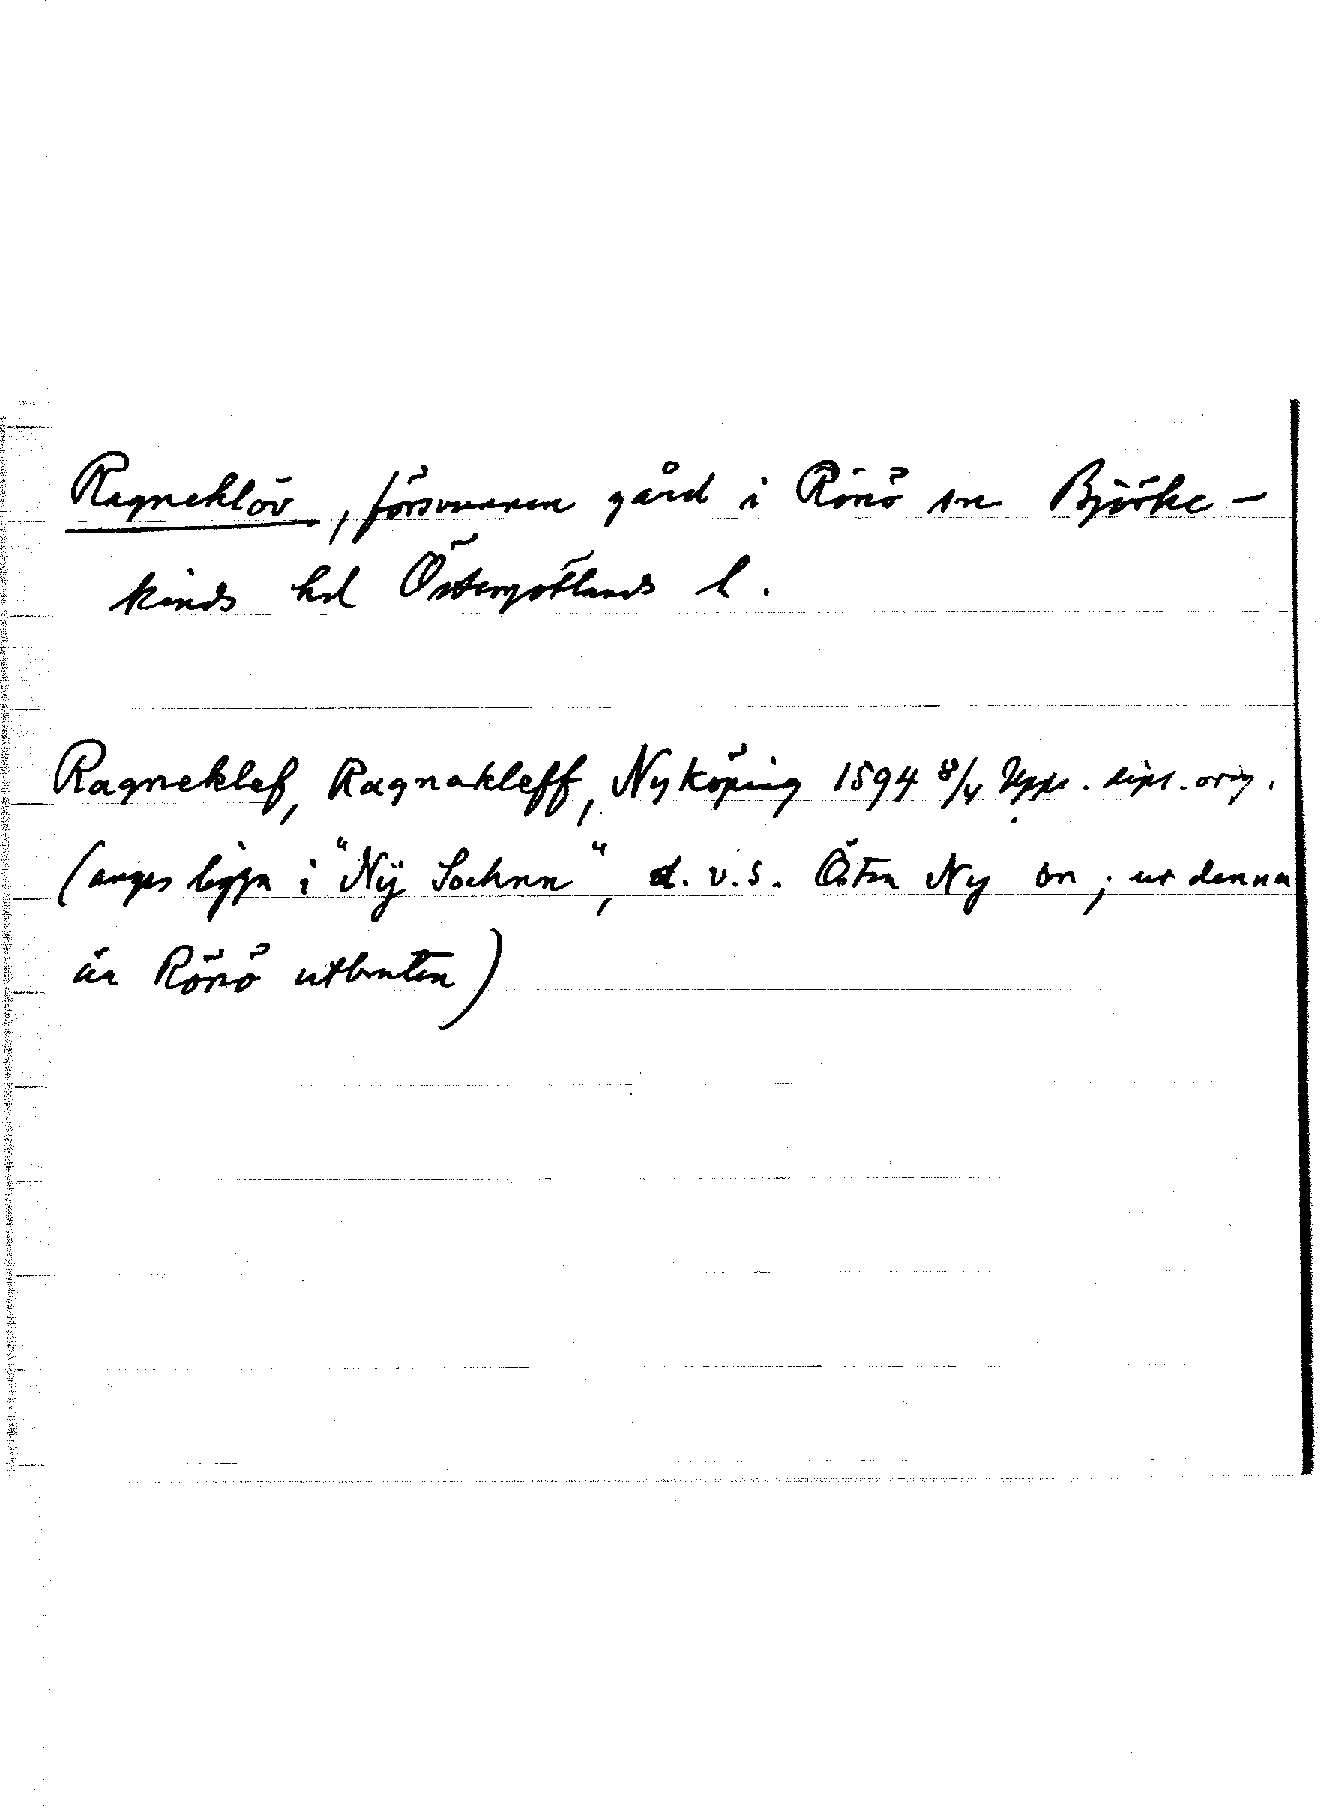 Ragneklöv, försvunnen gård i Rönö sn Björke-
kinds hd Östergötlands l.
Ragneklef, Ragnakleff, Nyköping 1594 8/4 Upps. dipl. orig.
(anges ligga i "Nÿ Sochnn", d.v.s. Östra Ny sn; ur denna
är Rönö utbruten)